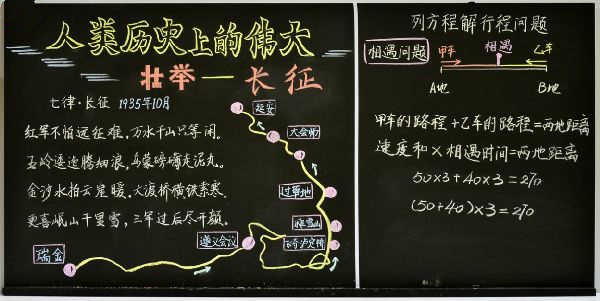 人类历史上的伟大
壮举—长征
七律·长征 1935年10月
红军不怕远征难，万水千山只等闲。
五岭逶迤腾细浪，乌蒙磅礴走泥丸。
金沙水拍云崖暖，大渡桥横铁索寒。
更喜岷山千里雪，三军过后尽开颜。
延安
大会师
过草地
爬雪山
飞夺泸定桥
遵义会议
瑞金
列方程解行程问题
相遇问题
甲车 相遇 乙车
A地 B地
甲车的路程+乙车的路程=两地距离
速度和×相遇时间=两地距离
50×3+40×3=270
(50+40)×3=270